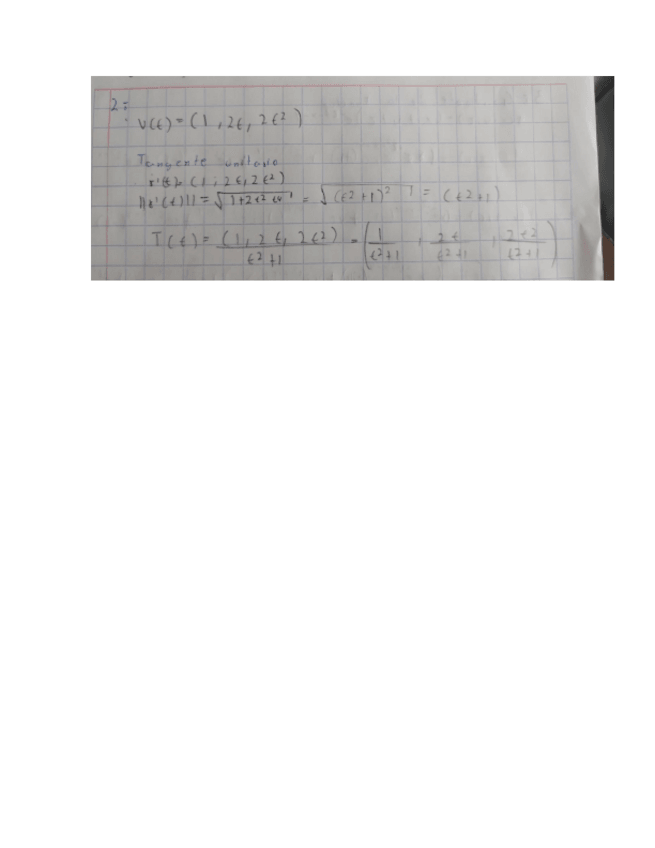 2:
v(t) = (1, 2t, 2t²)
Tangente unitario
r'(t) = (1, 2t, 2t²)
||r'(t)|| = √1+2t²+t⁴ = √(t²+1)² = (t²+1)
T(t) = (1, 2t, 2t²) / t²+1 = (1 / t²+1, 2t / t²+1, 2t² / t²+1)